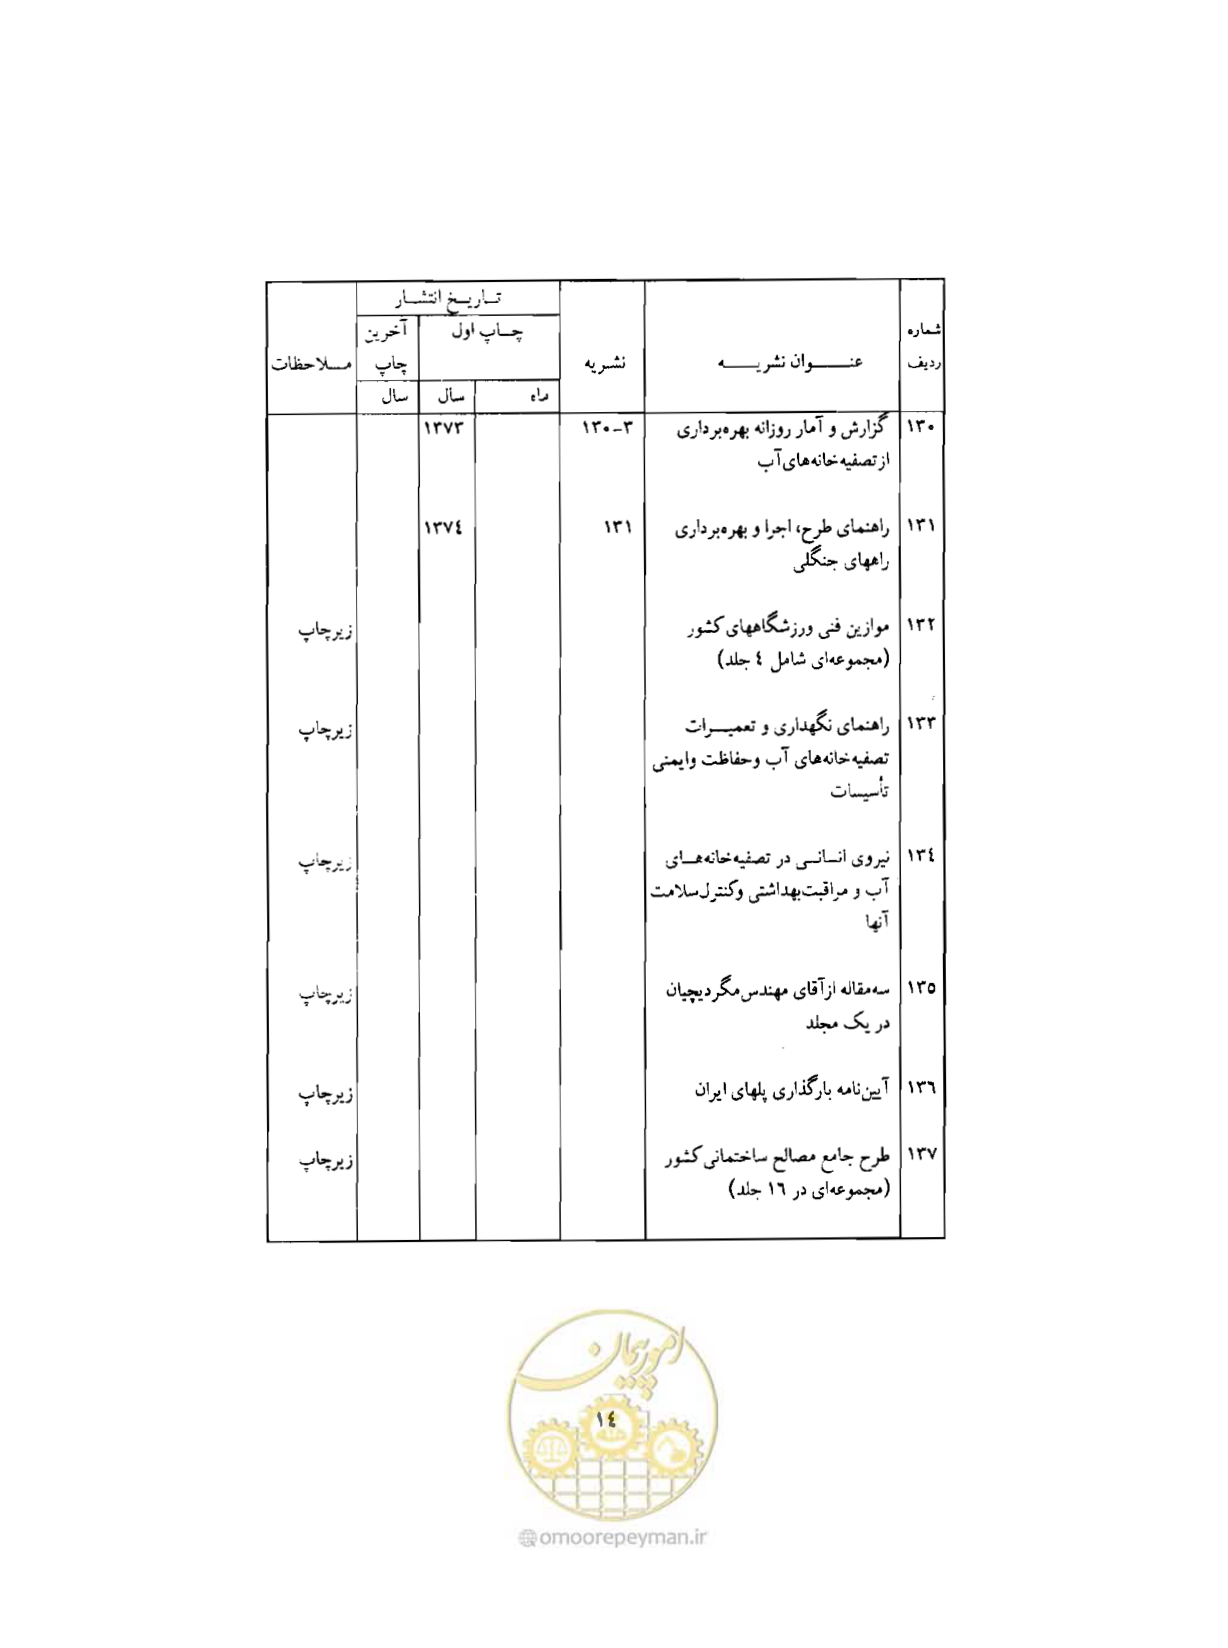 شماره ردیف	عنـــوان نشریـــه	نشریه	تـاریـخ انتشـار	مـلاحظات
چـاپ اول	آخرین چاپ
ماه	سال	سال
۱۳۰	گزارش و آمار روزانه بهره‌برداری	۱۳۰-۳	۱۳۷۳
از تصفیه‌خانه‌های آب
۱۳۱	راهنمای طرح، اجرا و بهره‌برداری	۱۳۱	۱۳۷٤
راههای جنگلی
۱۳۲	موازین فنی ورزشگاههای کشور	زیرچاپ
(مجموعه‌ای شامل ٤ جلد)
۱۳۳	راهنمای نگهداری و تعمیـــرات	زیرچاپ
تصفیه‌خانه‌های آب وحفاظت وایمنی
تأسیسات
۱۳٤	نیروی انسانـی در تصفیه‌خانه‌هـای	زیرچاپ
آب و مراقبت‌بهداشتی وکنترل‌سلامت
آنها
۱۳٥	سه‌مقاله ازآقای مهندس‌مگردیچیان	زیرچاپ
در یک مجلد
۱۳٦	آیین‌نامه بارگذاری پلهای ایران	زیرچاپ
۱۳۷	طرح جامع مصالح ساختمانی کشور	زیرچاپ
(مجموعه‌ای در ۱٦ جلد)
امور پیمان
۱٤
@omoorepeyman.ir